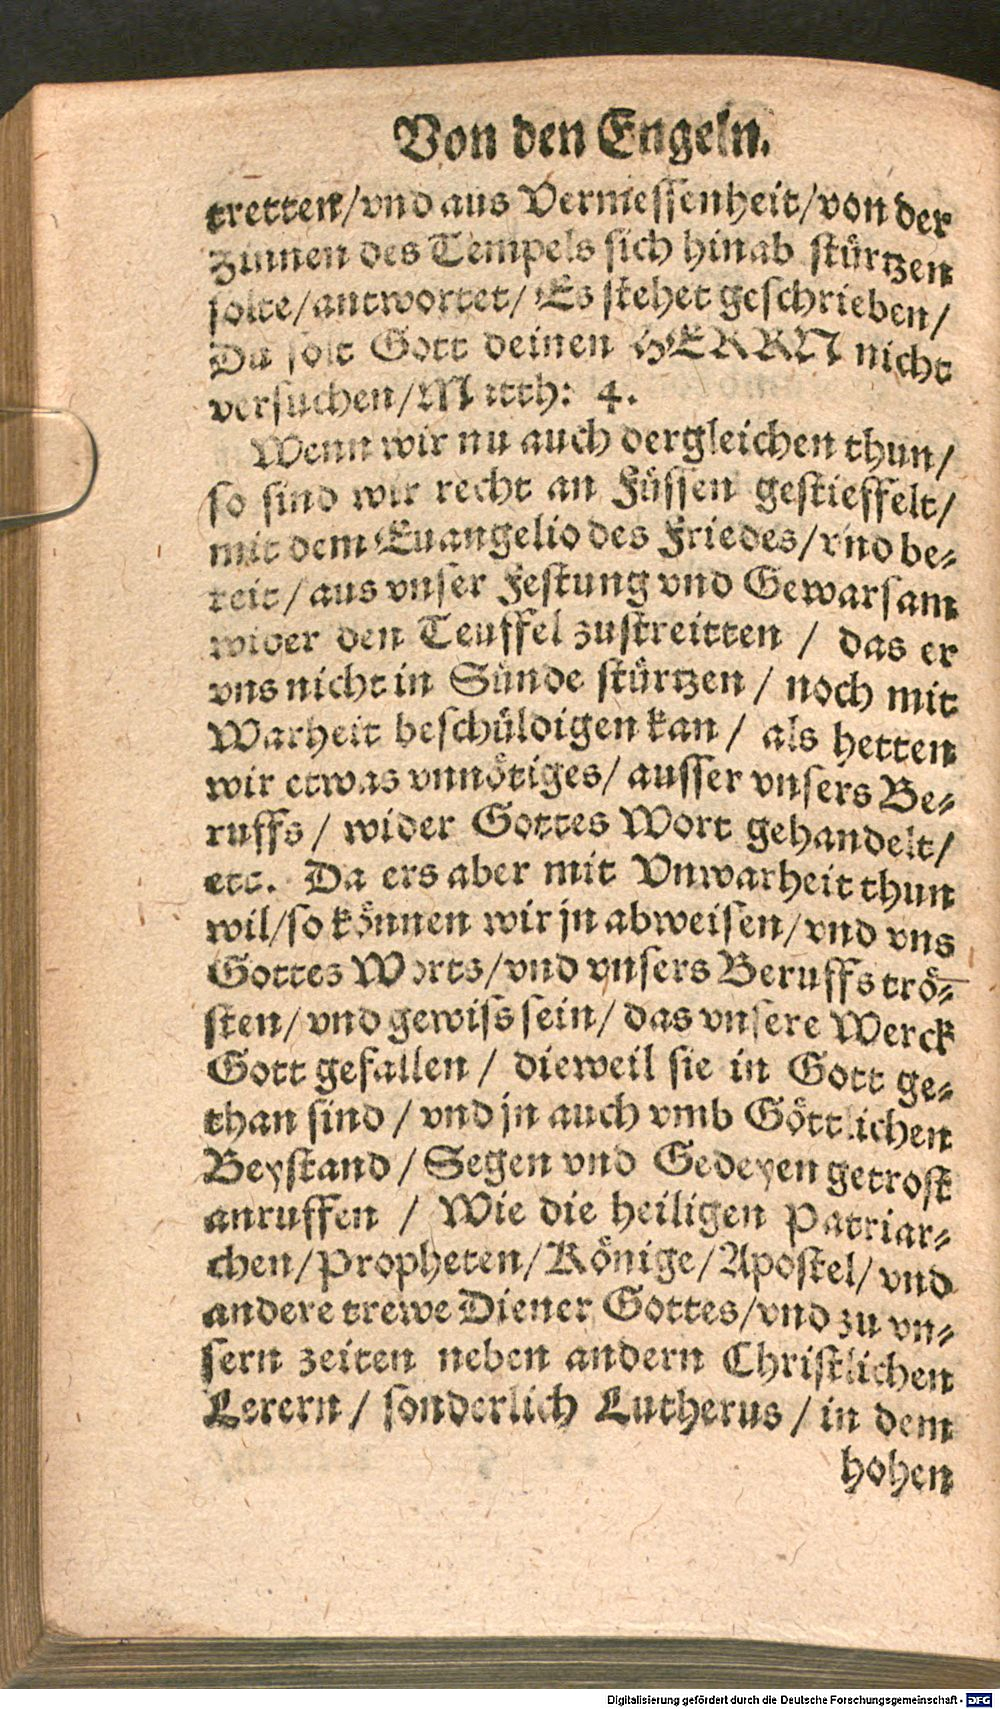 Von den Engeln.
tretten/vnd aus Vermessenheit/von der
Zinnen des Tempels sich hinab stürtzen
solte/antwortet/Es stehet geschrieben/
Du solt Gott deinen HERRN nicht
versuchen/Matth: 4.
Wenn wir nu auch dergleichen thun/
so sind wir recht an Füssen gestieffelt/
mit dem Euangelio des Friedes/vnd be-
reit/aus vnser Festung vnd Gewarsam
wider den Teuffel zustreitten / das er
vns nicht in Sünde stürtzen / noch mit
Warheit beschüldigen kan / als hetten
wir etwas vnnötiges/ausser vnsers Be-
ruffs / wider Gottes Wort gehandelt/
etc. Da ers aber mit Vnwarheit thun
wil/so können wir jn abweisen/vnd vns
Gottes Worts/vnd vnsers Beruffs trö-
sten/vnd gewiss sein/das vnsere Werck
Gott gefallen / dieweil sie in Gott ge-
than sind / vnd jn auch vmb Göttlichen
Beystand / Segen vnd Gedeyen getrost
anruffen / Wie die heiligen Patriar-
chen/Propheten/Könige/Apostel/vnd
andere trewe Diener Gottes/vnd zu vn-
sern zeiten neben andern Christlichen
Lerern / sonderlich Lutherus / in dem
hohen
Digitalisierung gefördert durch die Deutsche Forschungsgemeinschaft - DFG